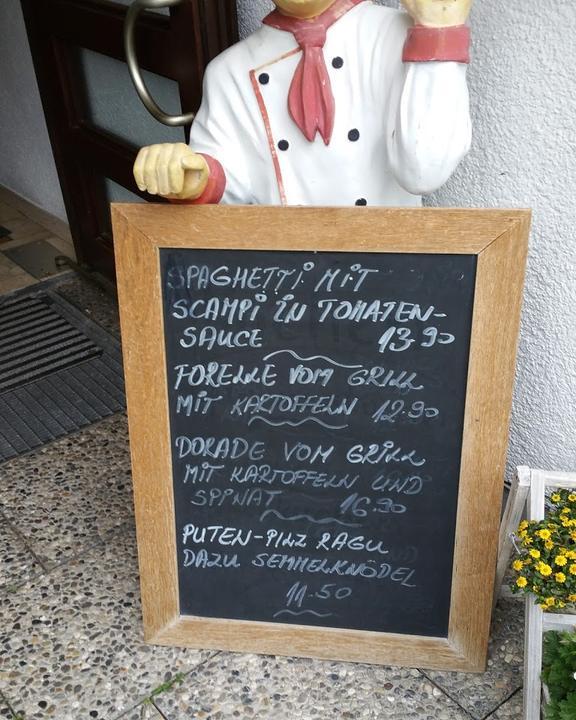 SPAGHETTI MIT
SCAMPI IN TOMATEN-
SAUCE 13.90
FORELLE VOM GRILL
MIT KARTOFFELN 12.90
DORADE VOM GRILL
MIT KARTOFFELN UND
SPPNAT 16.90
PUTEN-PILZ RAGU
DAZU SEMMELKNÖDEL
11.50